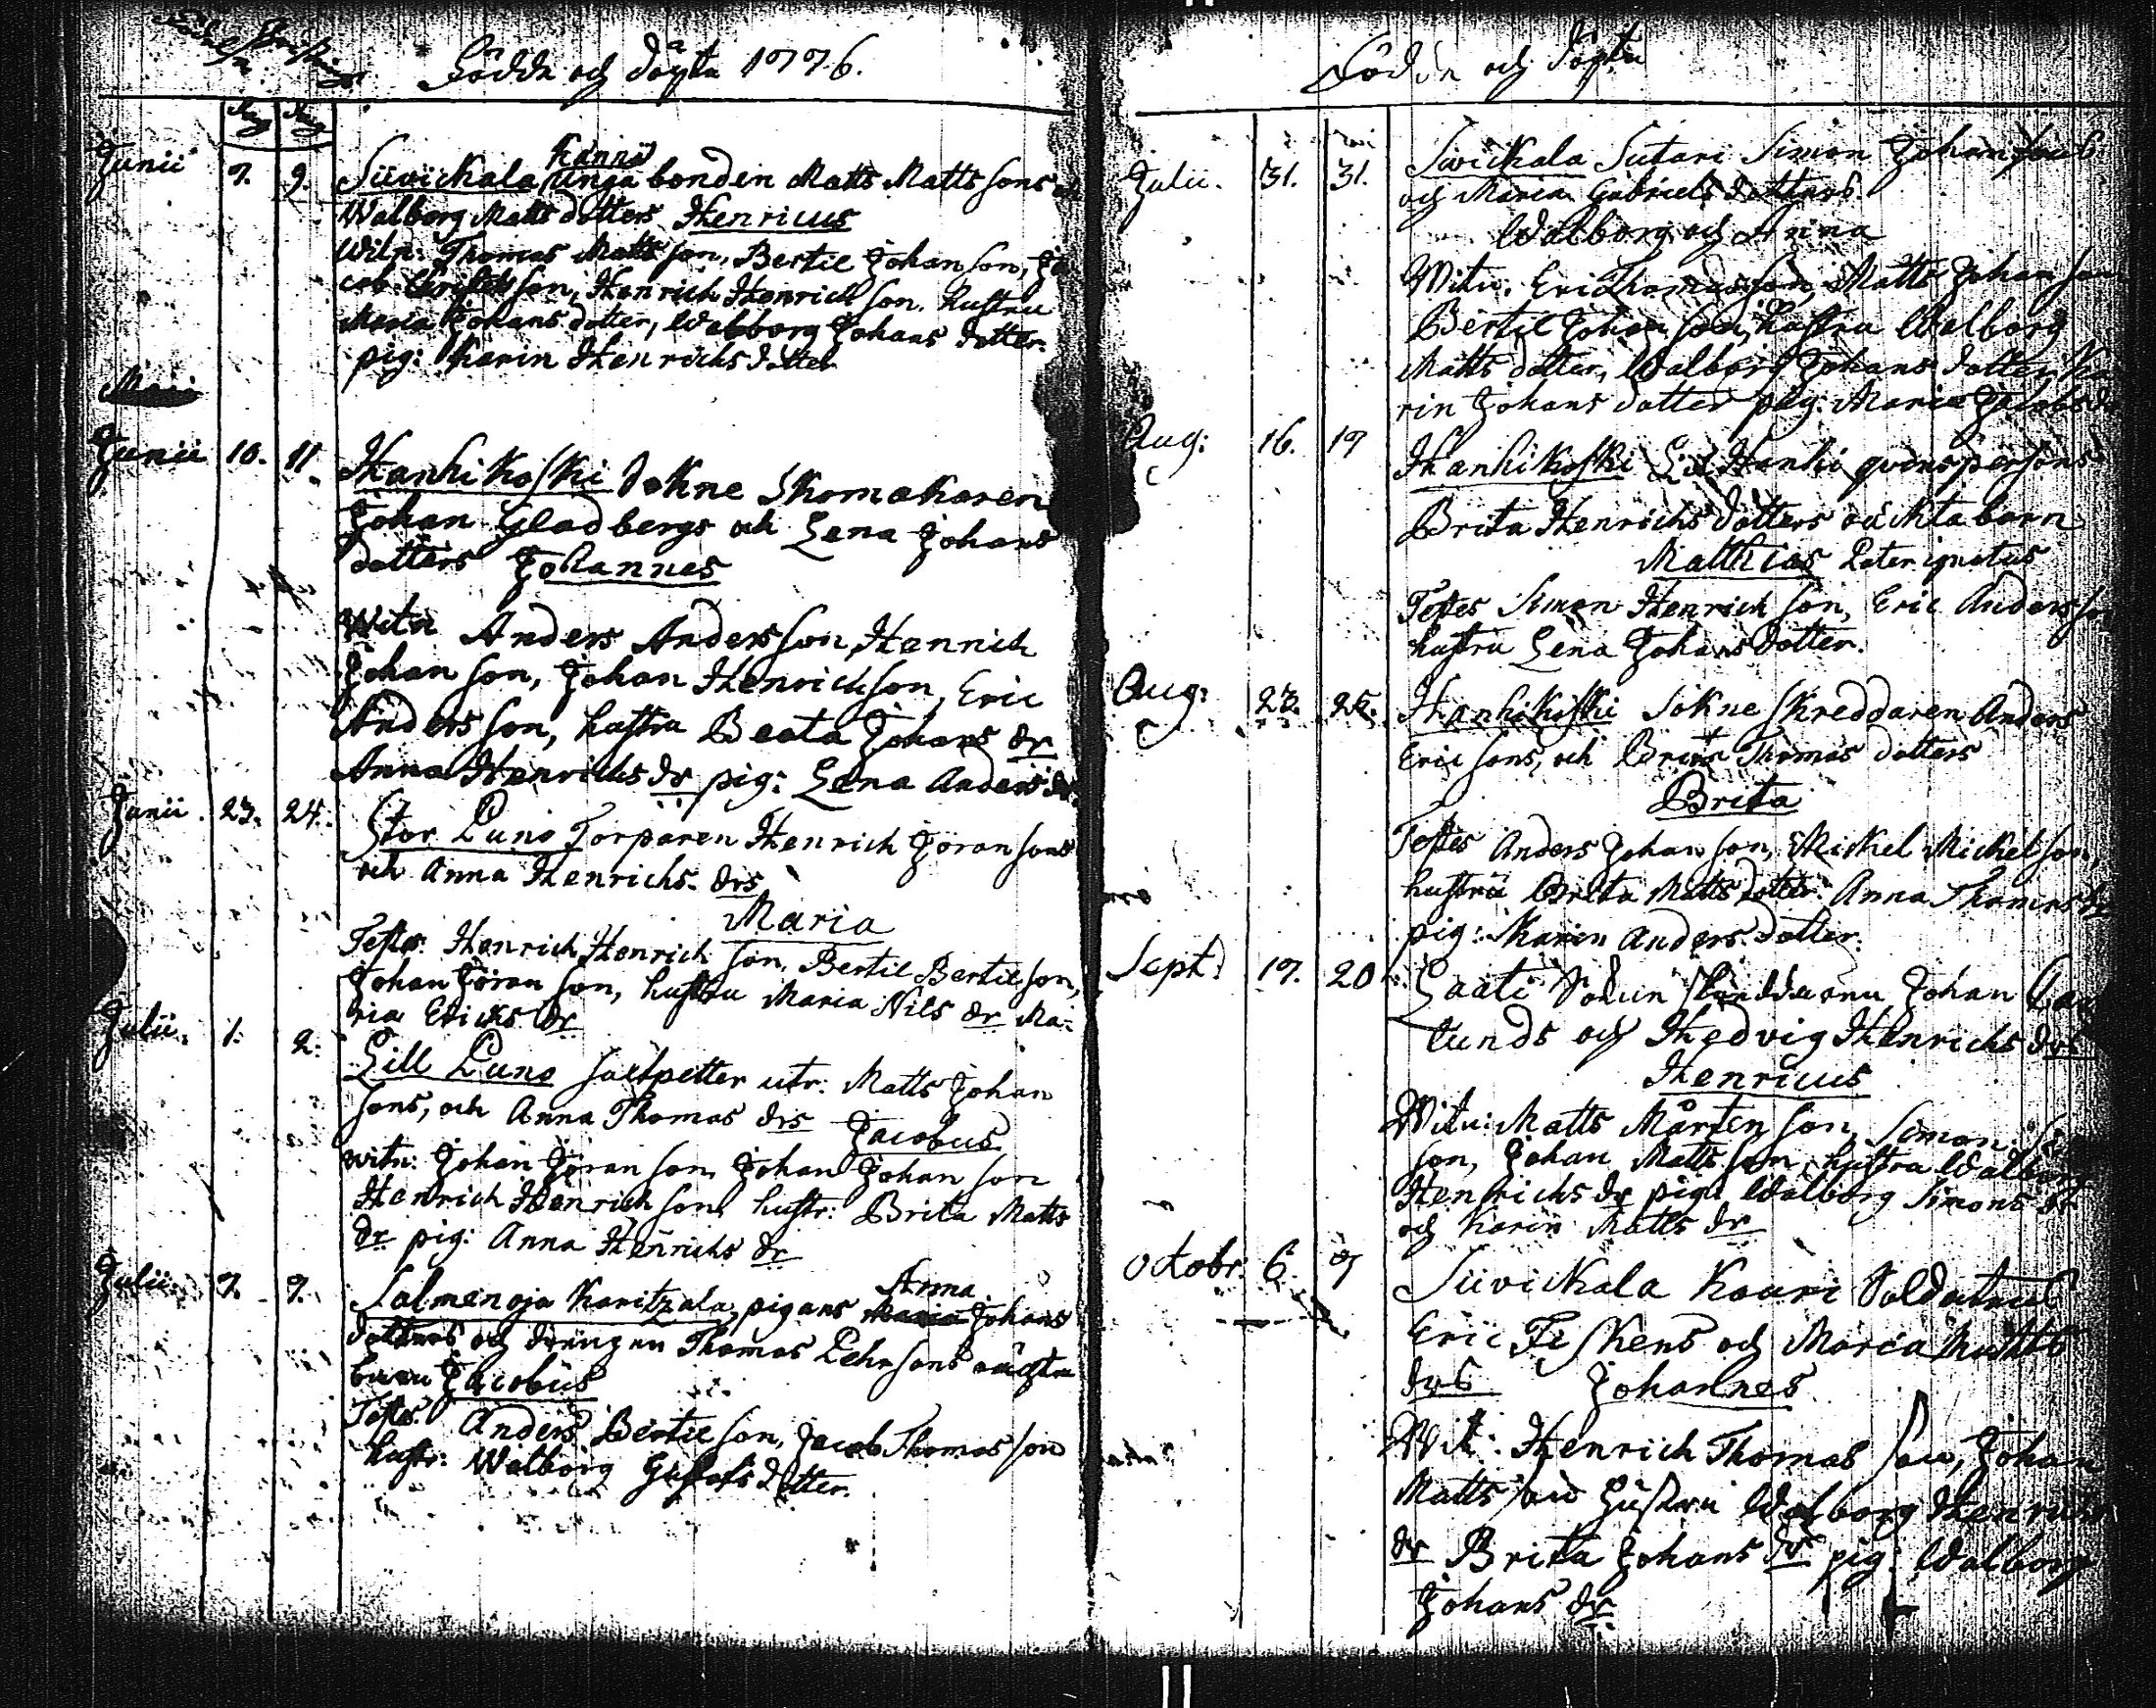 Födde och döpte 1776.
Dag Dag
Junii 7. 9. Siivickala Kannis unga bonden Matts Mattssons och
Walborg Matts dotters Henricus
Witn: Thomas Mattsson, Bertil Johansson, Ja
cob Erichsson, Henrich Henrichsson. hustru
Maria Johans dotter, Walborg Johans dotter.
pig: Karin Henrichs dotter
Junii 10. 11. Hanhikoski Sokne Skomakaren
Johan Gladbergs och Lena Johans
dotters Johannes
Witn Anders Andersson, Henrich
Johansson, Johan Henrichsson, Eric
Andersson, hustru Beata Johans dr
Anna Henrichs dr pig: Lena Anders dr.
Junii. 23. 24. Stor Luno Torparen Henrich Jöransons
och Anna Henrichs drs
Maria
Testes: Henrich Henrichson, Bertil Bertilson,
Johan Jöranson, hustru Maria Nils dr Ma-
ria Erichs dr
Julii. 1. 2. Lill Luno saltpetter utr: Matts Johan
sons, och Anna Thomas drs Jacobus
witn: Johan Jöranson, Johan Johanson
Henrich Henrichson, hustr: Brita Matts
dr pig: Anna Henrichs dr
Julii. 7. 7. Salmenoja Karitzala, pigans Anna Johans
dotters och drängen Thomas Lehrsons oächta
barn Jacobus
Testes: Anders Bertilson, Jacob Thomasson
hustr: Walborg Gustafs dotter.
Födde och döpte
Julii. 31. 31. Sivickala Sutari Simon Johansons
och Maria Gabriels dotters
Walborg och Anna
Witn. Eric Thomasson, Matts Johanson
Bertil Johanson, hustru Walborg
Matts dotter, Walborg Johans dotter, Ka
rin Johans dotter pig: Maria Jacobs dr
Aug: 16. 17 Hanhikoski Lill Hanhi qvinspersons
Brita Henrichs dotters oäckta barn
Matthias Pater ignotus
Testes Simon Henrichson, Eric Andersson
hustru Lena Johans dotter.
Aug: 23. 25. Hanhikoski Sokne skreddaren Anders
Ericsons, och Brita Thomas dotters
Brita
Testes Anders Johanson, Mickel Mickelson,
hustru Brita Matts dotter. Anna Thomas dr
pig: Karin Anders dotter.
Sept: 17. 20 Laati Sokne Johan
lunds och Hedvig Henrichs drs
Henricus
Witn: Matts Mårtenson, Simon
son, Johan Mattsson, hustru Walborg
Henrichs dr pig: Walborg Simons dr
och Karin Matts dr
Octobr. 6. 7 Siivickala Kouri Soldatens
Eric Fiskens och Maria Matts
drs Johannes
Wit: Henrich Thomasson, Johan
Mattsson hustru Walborg Henrichs
dr Brita Johans dr pig: Walborg
Johans dr